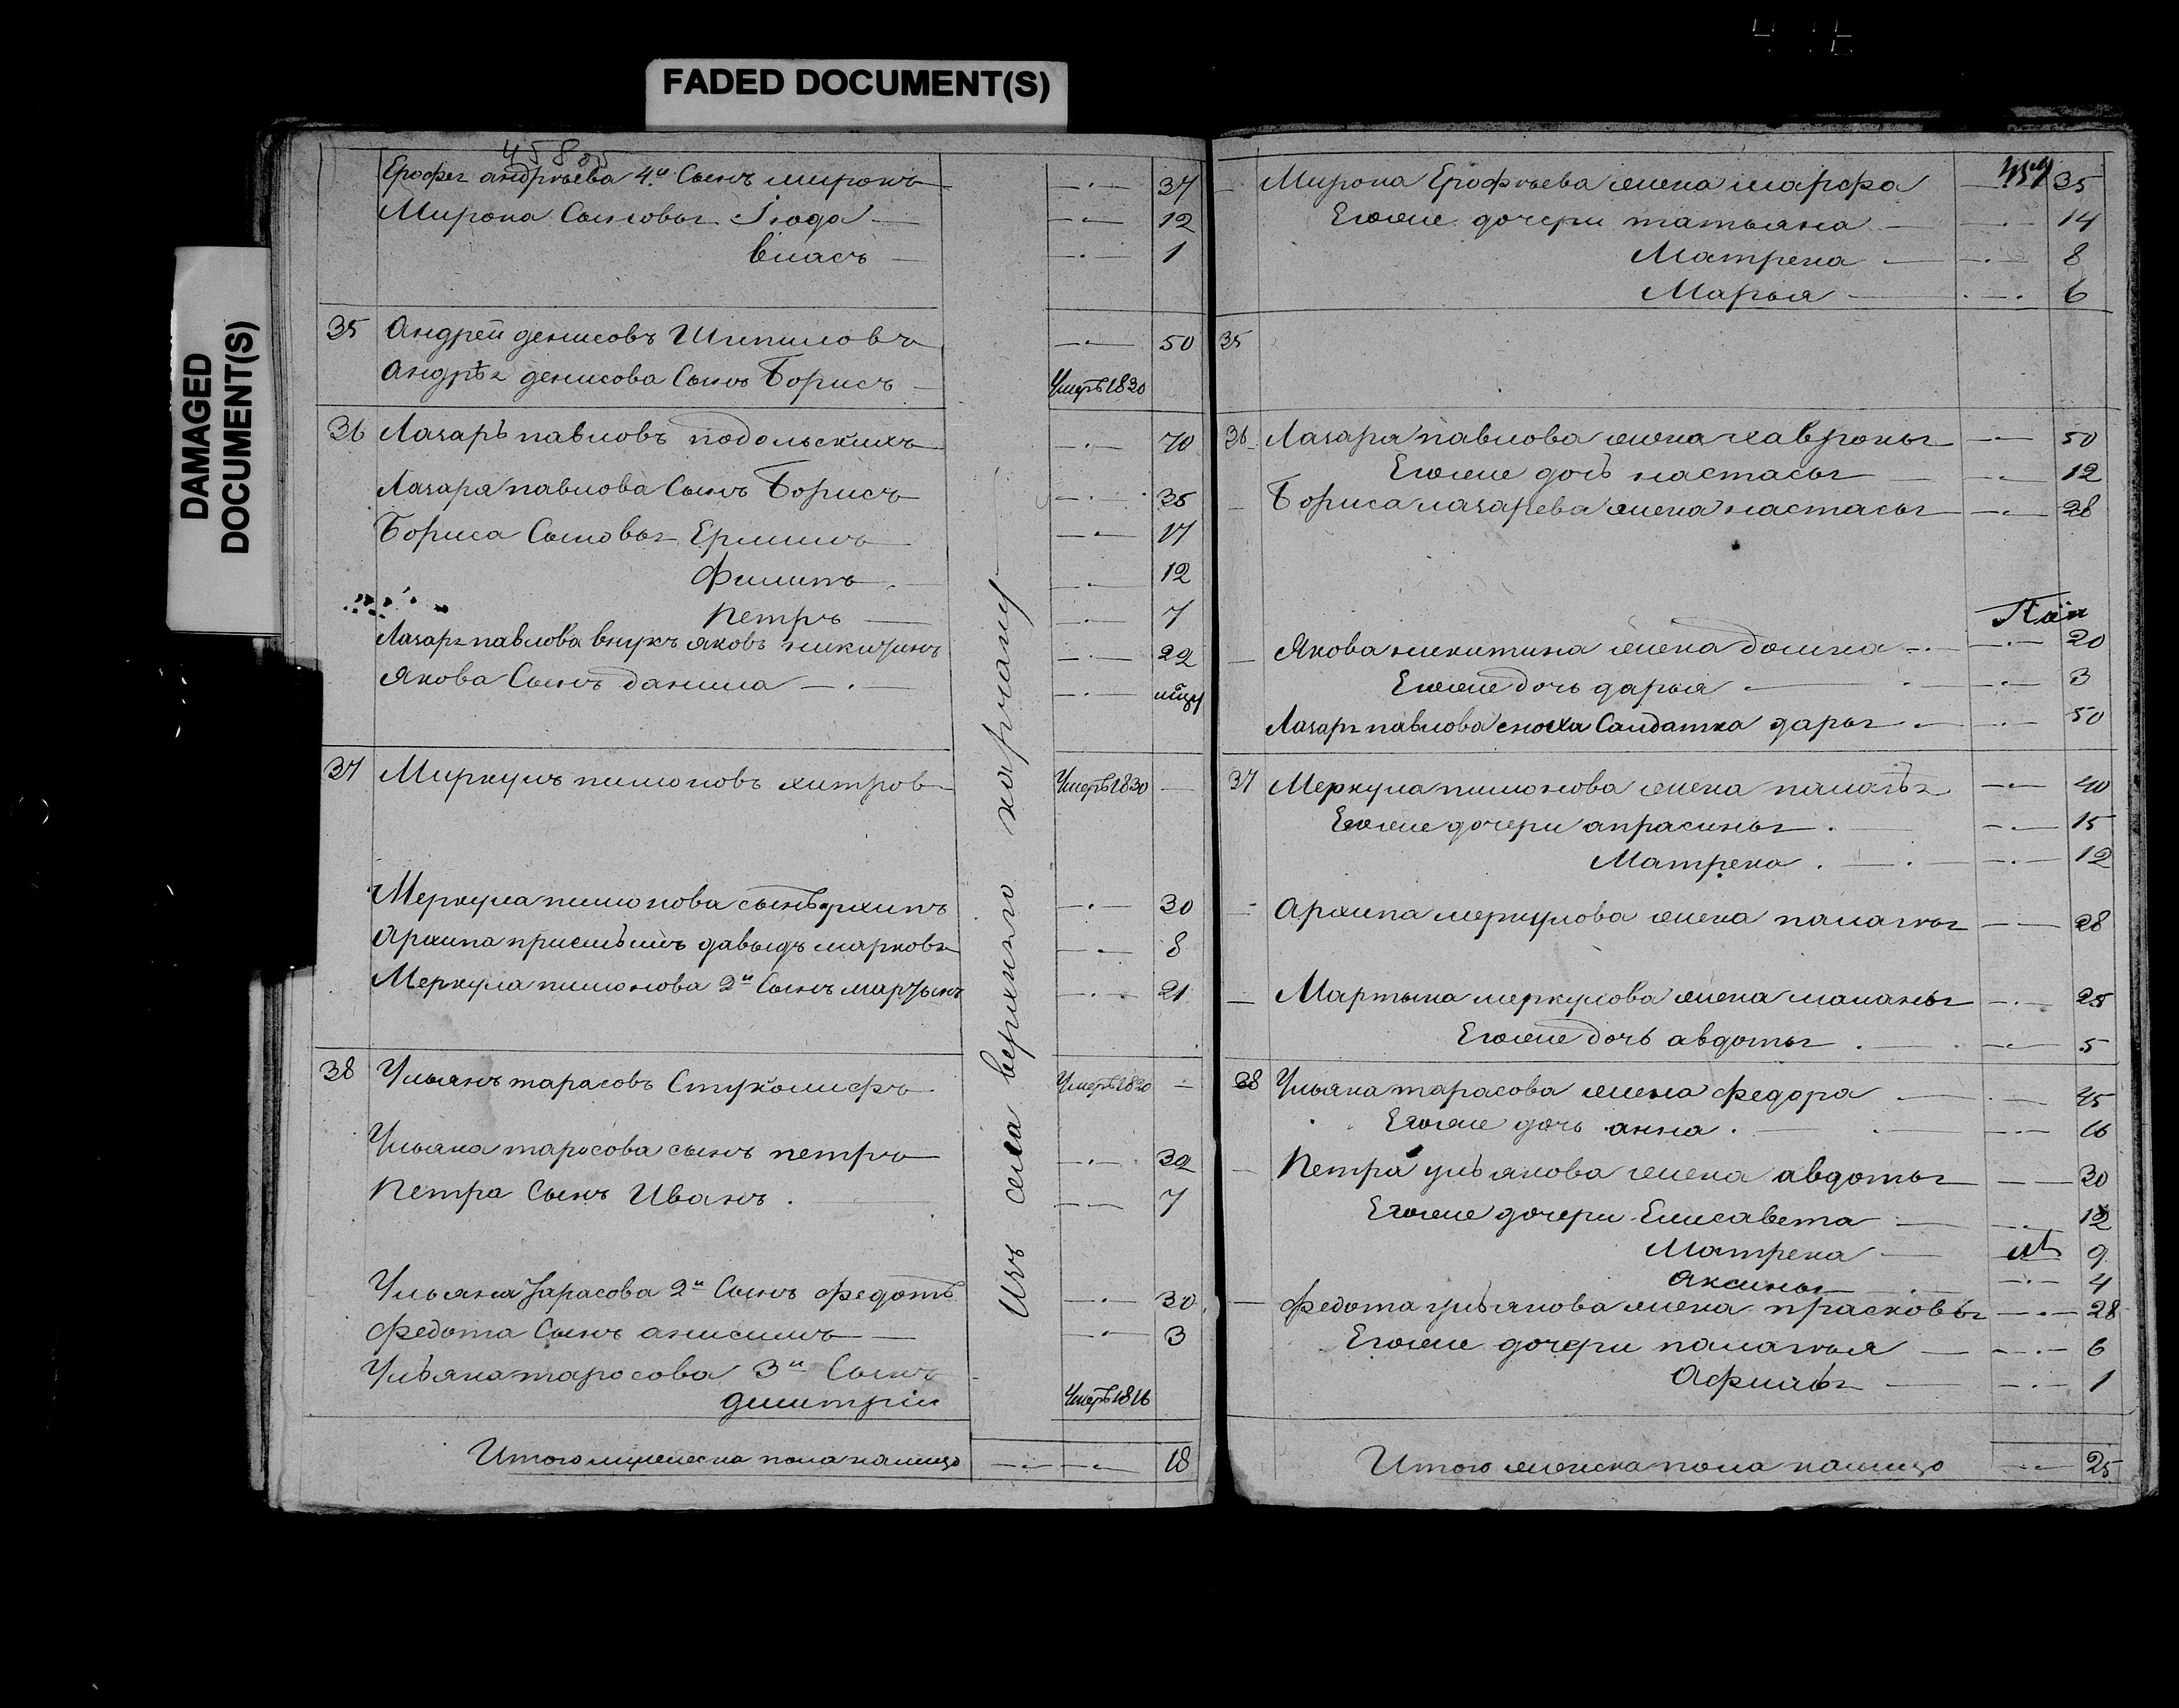 FADED DOCUMENT(S)
DAMAGED
DOCUMENT(S)
458 об
Ерофея андрѣева 4й Сынъ миронъ — 37
Мирона Сыновья Июда — 12
власъ — 1
35 Андрей денисовъ Шипиловъ — 50
Андрѣя денисова Сынъ Борисъ — Умеръ 1830
36 Лазарь павловъ подольскихъ — 70
Лазаря павлова Сынъ Борисъ — 35
Бориса Сыновья Ермилъ — 17
Филипъ — 12
Петръ — 7
Лазаря павлова внукъ яковъ никитинъ — 22
Якова Сынъ данила —
37 Меркулъ пимоновъ хитров — Умеръ 1830 —
Меркула пимонова сынъ архипъ — 30
Архипа приемышъ давыдъ марковъ — 8
Меркула пимонова 2й Сынъ мартынъ — 21
38 Ульянъ тарасовъ — Умеръ 1830 —
Ульяна тарасова сынъ петръ — 32
Петра Сынъ Иванъ — 7
Ульяна тарасова 2й Сынъ федотъ — 30
федота Сынъ анисимъ — 3
Ульяна тарасова 3й Сынъ
дмитрій Умеръ 1816
Итого мужеска пола налицо — 18
Изъ села верхняго
459
Мирона Ерофѣева жена марфа — 35
Егоже дочери татьяна — 14
Матрена — 8
Марья — 6
35
36 Лазаря павлова жена хавронья — 50
Егоже дочь настасья — 12
Бориса лазарева жена настасья — 28
Якова никитина жена домна — 20
Егоже дочь дарья — 3
Лазаря павлова сноха Салдатка дарья — 50
37 Меркула пимонова жена палагѣя — 40
Егоже дочери апрасинья — 15
Матрена — 12
Архипа меркулова жена палагья — 28
Мартына меркулова жена маланья — 25
Егоже дочь авдотья — 5
38 Ульяна тарасова жена федора — 45
Егоже дочь анна — 16
Петра ульянова жена авдотья — 30
Егоже дочери Елисавета — 12
Матрена — 9
Аксинья — 4
федота ульянова жена прасковья — 28
Егоже дочери палагья — 6
Афимья — 1
Итого женска пола налицо — 25